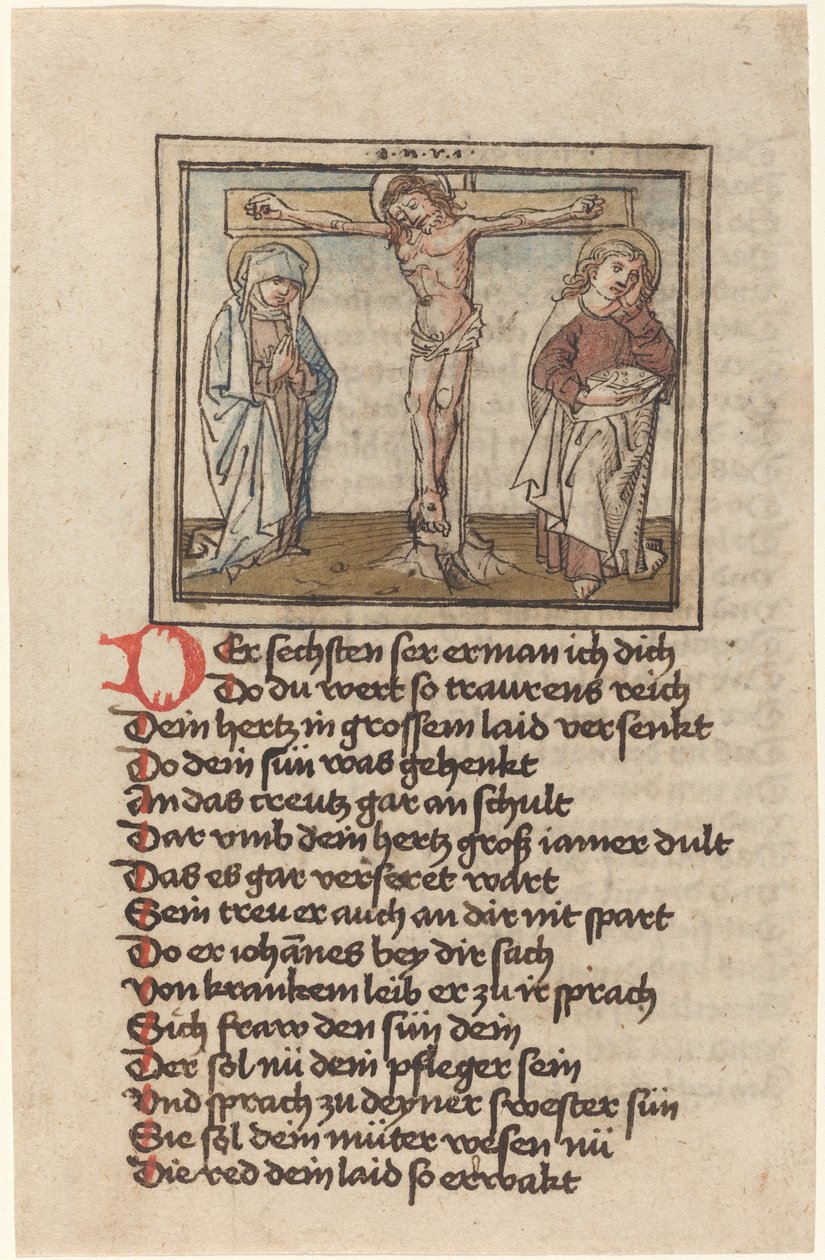 ·i·n·r·i·
DEr sechsten ser erman ich dich
Do du wert so traurens reich
Dein hertz in grossem laid versenkt
Do dein sün was gehenkt
An das creutz gar an schult
Dar vmb dein hertz groß iamer dult
Das es gar verseret wart
Sein treu er auch an dir nit spart
Do er iohānes bey dir sach
Von krankem leib er zu ir sprach
Sich fraw den sün dein
Der sol nü dein pfleger sein
Vnd sprach zu deyner swester sün
Sie sol dein müter wesen nü
Die red dein laid so erwakt